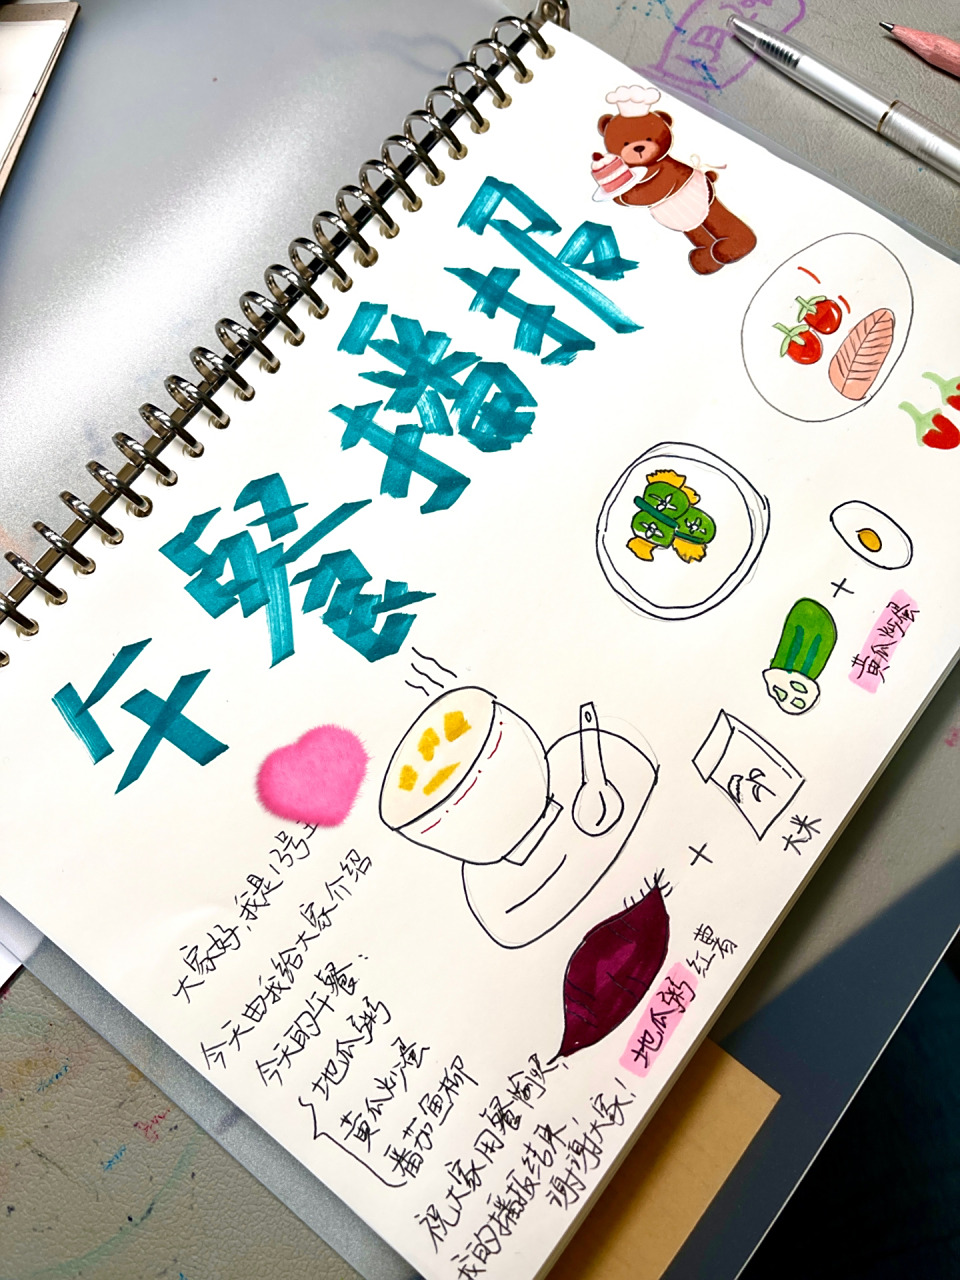 午餐播报
大家好,我是13号
今天由我给大家介绍
今天的午餐:
地瓜粥
黄瓜炒蛋
番茄鱼柳
祝大家用餐愉快,
我的播报结束
谢谢大家!
黄瓜炒蛋
大米
红薯
地瓜粥